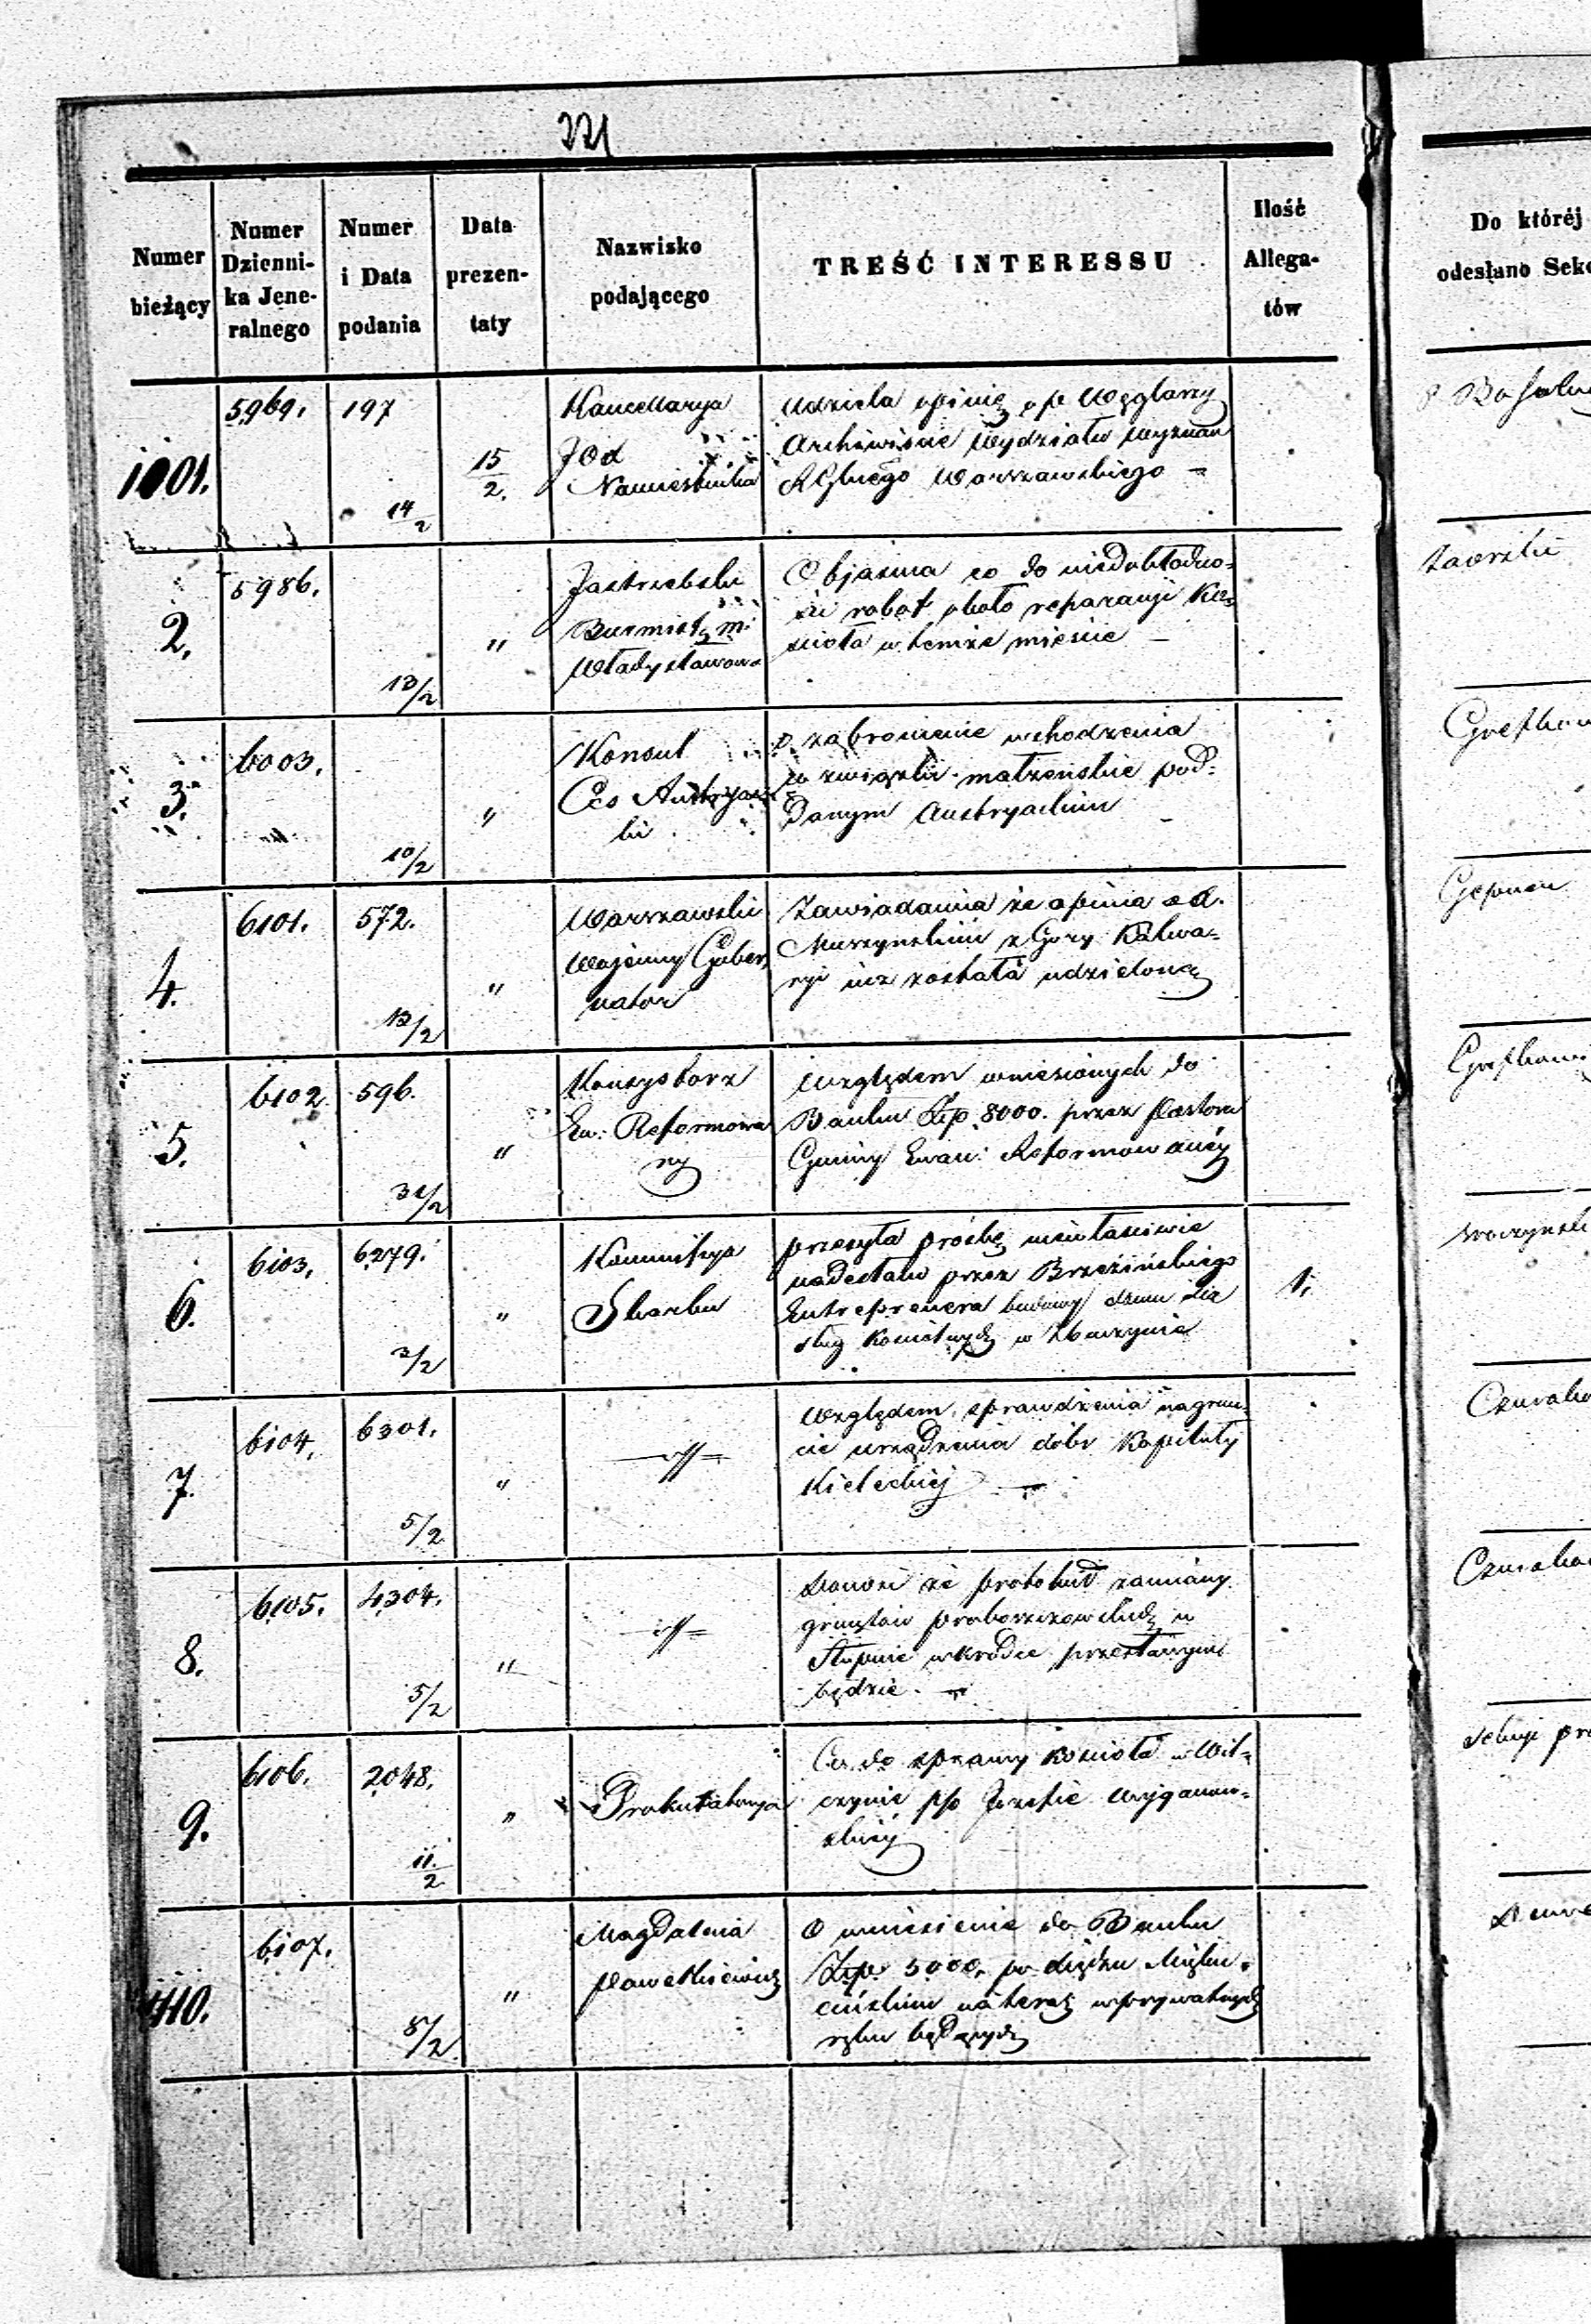 221
Numer bieżący
Numer Dzienni-ka Jene-ralnego
Numer i Data podania
Data prezen-taty
Nazwisko podającego
TREŚĆ INTERESSU
Ilość Allega-tów
Do któréj
odesłano
1001.
5969.
197
14/2
15/2.
Kancellarya
JOX
Namiestnika
Udziela opinię o p. Węglarzy
Archiwiście Wydziału Wyznań
Warszawskiego
2.
5986.
13/2
"
Jastrzebski
Burmistz m:
Władysławow
Objasnia co do niedokładno-
ści robot około reparacyi Ko-
ścioła w temże mieście –
Zaorski
3.
6003.
10/2
"
Konsul
Ces Austryac
ki
o zabronienie wchodzenia
w związki małżeńskie pod-
danym Austryackim –
4.
6101.
572.
13/2
"
Warszawski
Wojenny Guber
nator
Zawiadamia że opinia o X.
Muszyńskim z Gory Kalwa-
ryi już została udzieloną
5.
6102
596.
"
Konsystorz
Ew: Reformowa
ny
Względem wniesionych do
Banku Złp. 8000. przez Pastora
Gminy Ewan: Reformowanéj
6.
6103.
6279.
3/2
"
Kommissya
Skarbu
przesyła prośbę niewłaściwie
nadesłaną przez Brzezińskiego
Entreprenera budowy domu dla
sług Kościelnych w
1.
7.
6104.
6301.
5/2
"
Względem sprawdzenia na grun-
cie urządzenia dóbr Kapituły
Kieleckiej –
8.
6105.
4304.
5/2
"
Donosi że protokuł zamiany
gruntów proboszczowskich w
Słupnie wkrótce przesłanym
będzie. –
9.
6106.
2048.
11/2
"
Prokuratorya
Co do sprawy Kościoła w Wil-
czynie p/o Józefie Wyganow-
skiéj
1010.
6107.
5/2
"
Magdalena
Pawełkiewicz
O wniesienie do Banku
Złp. 5000, po księdzu
na teraz w prywatnych
ręku będących